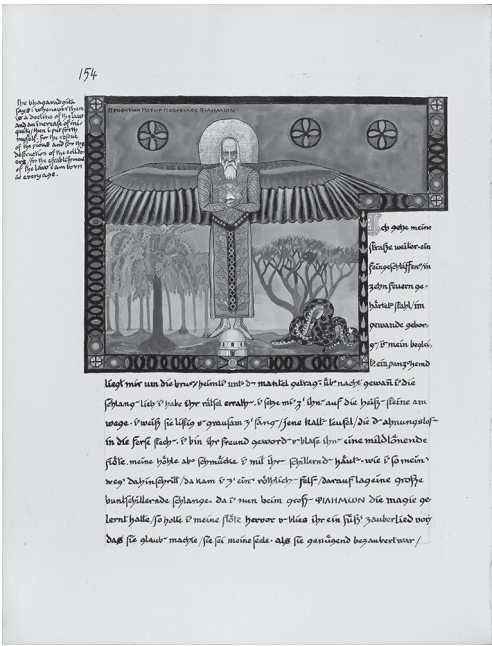 154
The bhagavadgita
says: whenever there
is a decline of the law
and an increase of ini-
quity/then i put forth
myself. for the rescue
of the pious and for the
destruction of the evildo-
ers/for the establishment
of the law i am born
in every age.
ΠΡΟΦΗΤΩΝ ΠΑΤΗΡ ΠΟΛΥΦΙΛΟΣ ΦΙΛΗΜΩΝ
Ich gehe meine
straße weiter. ein
feingeschliffen/in
zehn feuern ge-
härtet stahl/im
gewande gebor-
g/ist mein beglei.
ein panzerhemd
liegt mir um die brust/heimli unt d mantel getrag. üb nacht gewan i die
schlang lieb i habe ihr rätsel errath. i setze mi z' ihn auf die heiß steine am
wege. i weiß sie listig u grausam z' fang/jene kalt teufel/die d ahnungslos
in die ferse stech. i bin ihr freund geword u blase ihn eine mildtönende
flöte. meine höhle ab schmücke i mit ihr schillernd häut. wie i so mein
weg dahinschritt/da kam i z' ein röthlich fels/darauf lag eine große
buntschillernde schlange. da i nun beim groß ΦΙΛΗΜΩΝ die magie ge
lernt hatte/so holte i meine flöte hervor u blies ihr ein süß zauberlied vor/
das sie glaub machte/sie sei meine seele. als sie genügend bezaubert war/